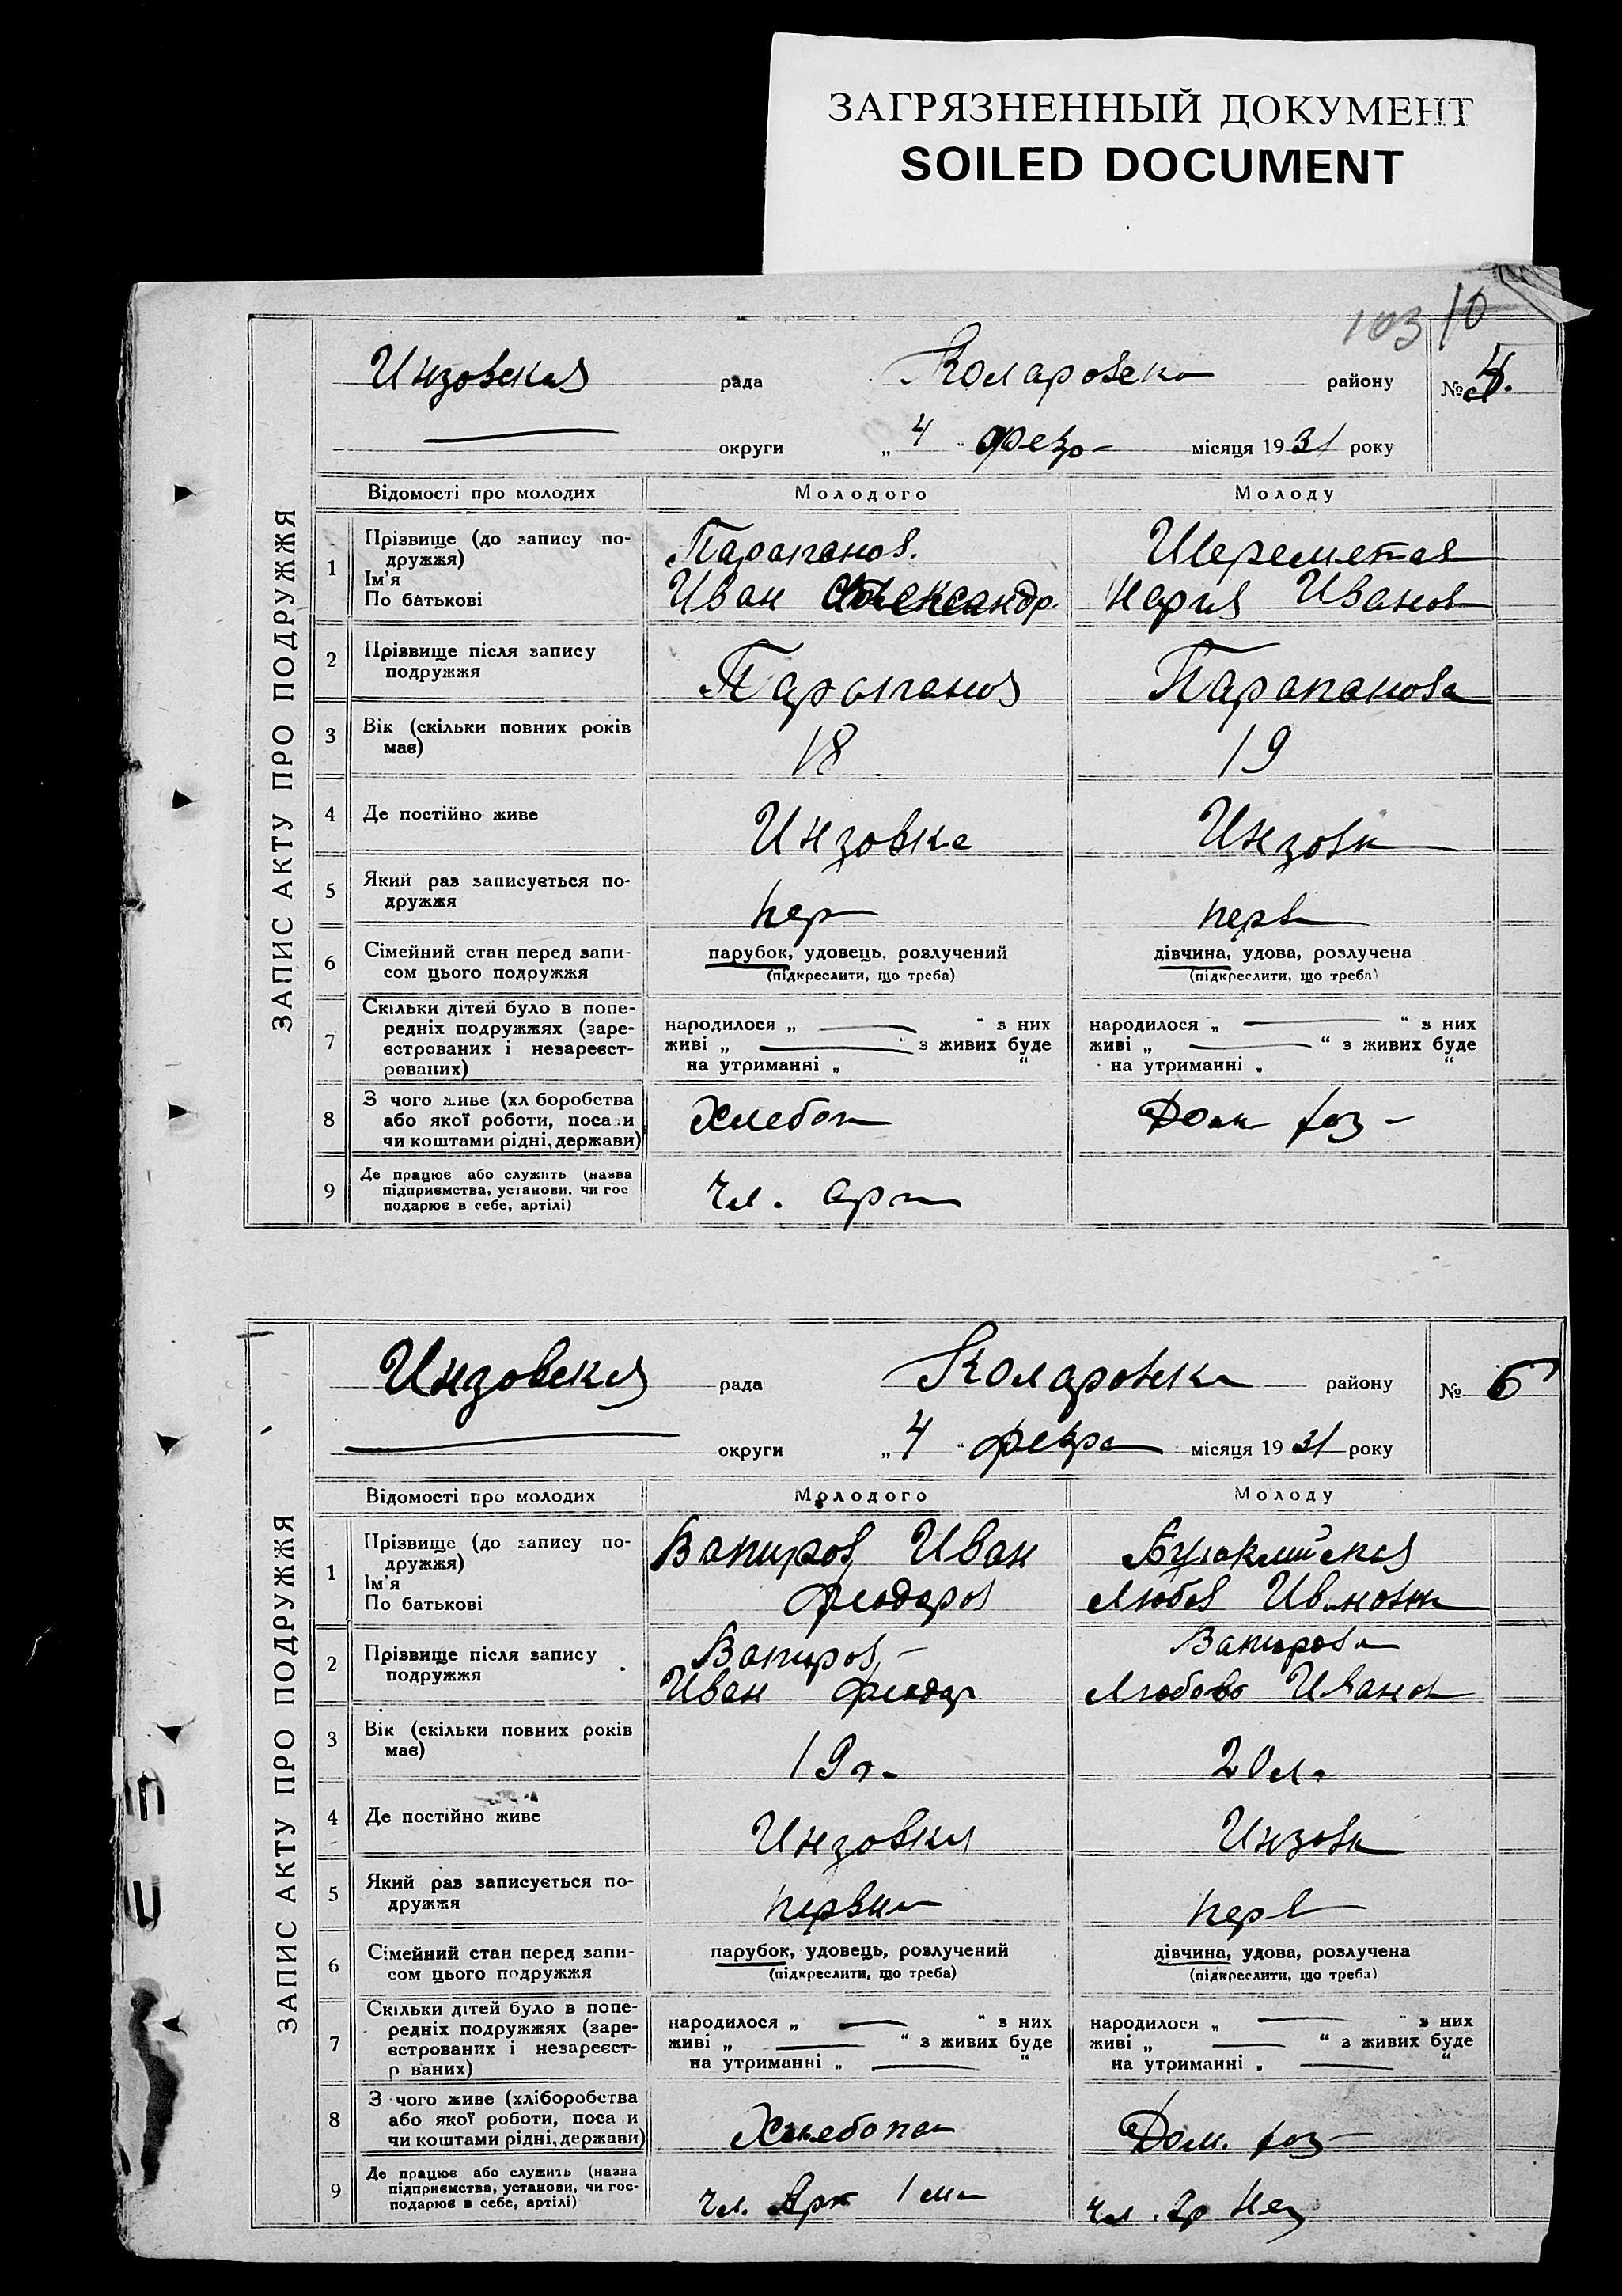 ЗАГРЯЗНЕННЫЙ ДОКУМЕНТ
SOILED DOCUMENT
103 10
ЗАПИС АКТУ ПРО ПОДРУЖЖЯ
Инзовская рада Коларовска району № 4.
округи „ 4 “ февр місяця 1931 року
Відомості про молодих Молодого Молоду
1 Прізвище (до запису по-
дружжя)
Ім'я
По батькові
Парапанов.
Иван Александр.
Шереметая
Мария Иванов
2 Прізвище після запису
подружжя
Парапанов Парапанова
3 Вік (скільки повних років
має)
18 19
4 Де постійно живе Инзовка Инзовк
5 Який раз записується по-
дружжя
пер перв
6 Сімейний стан перед запи-
сом цього подружжя
парубок, удовець, розлучений
(підкреслити, що треба)
дівчина, удова, розлучена
(підкреслити, що треба)
7 Скільки дітей було в попе-
редніх подружжях (заре-
єстрованих і незареєст-
рованих)
народилося „ “ з них
живі „ “ з живих буде
на утриманні „ “
народилося „ “ з них
живі „ “ з живих буде
на утриманні „ “
8 З чого живе (хл боробства
або якої роботи, поса и
чи коштами рідні, держави)
Хлебоп Дом хоз
9 Де працює або служить (назва
підприємства, установи, чи гос
подарює в себе, артілі)
Чл. арт
ЗАПИС АКТУ ПРО ПОДРУЖЖЯ
Инзовская рада Коларовска району № 5
округи „ 4 “ февра місяця 1931 року
Відомості про молодих Молодого Молоду
1 Прізвище (до запису по-
дружжя)
Ім'я
По батькові
Вапиров Иван
Феодоров
Буюклийская
Любов Ивановн
2 Прізвище після запису
подружжя
Вапиров
Иван Феодор
Вапирова
Любовь Иванов
3 Вік (скільки повних років
має)
19 л. 20 л.
4 Де постійно живе Инзовка Инзовк
5 Який раз записується по-
дружжя
первы перв
6 Сімейний стан перед запи-
сом цього подружжя
парубок, удовець, розлучений
(підкреслити, що треба)
дівчина, удова, розлучена
(підкреслити, що треба)
7 Скільки дітей було в попе-
редніх подружжях (заре-
єстрованих і незареєст-
р ваних)
народилося „ “ з них
живі „ “ з живих буде
на утриманні „ “
народилося „ “ з них
живі „ “ з живих буде
на утриманні „ “
8 З чого живе (хліборобства
або якої роботи, поса и
чи коштами рідні, держави)
Хлебопа Дом. хоз
9 Де працює або служить (назва
підприємства, установи, чи гос-
подарює в себе, артілі)
Чл. Арт
Чл.